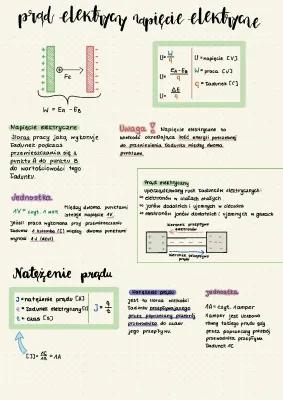 prąd elektryczny napięcie elektryczne
+
Fe
W = EA - EB
U = W/q
U = napięcie [V]
U = EA - EB / q
W = praca [J]
U = ΔE/q
q = ładunek [C]
Napięcie elektryczne
Iloraz pracy jaką wykonuje
ładunek podczas
przemieszczania się z
punktu A do punktu B
do wartościowości tego
ładunku.
Uwaga! Napięcie elektryczne to
wielkość określająca ilość energii potrzebnej
do przeniesienia ładunku między dwoma
punktami.
Jednostka
1V = czyt. 1 wolt
Między dwoma punktami
istnieje napięcie 1V,
jeżeli praca wykonana przy przenoszeniu
ładunku 1 kulomba [C] między dwoma punktami
wynosi 1J (dżul)
Prąd elektryczny
uporządkowany ruch ładunków elektrycznych:
elektronów w ciałach stałych
jonów dodatnich i ujemnych w cieczach
elektronów jonów dodatnich i ujemnych w gazach
kierunek przepływu
elektronów
kierunek przepływu
prądu
Natężenie prądu
J = natężenie prądu [A]
q = ładunek elektryczny [C]
t = czas [s]
J = q/t
[J] = 1C/1s = 1A
Natężenie prądu
jest to iloraz wielkości
ładunku przepływającego
przez poprzeczny przekrój
przewodnika do czasu
jego przepływu.
jednostka
1A = czyt. 1 amper
1 amper jest liczbowo
równy takiego prądu gdy
przez poprzeczny przekrój
przewodnika przepływa
ładunek 1C